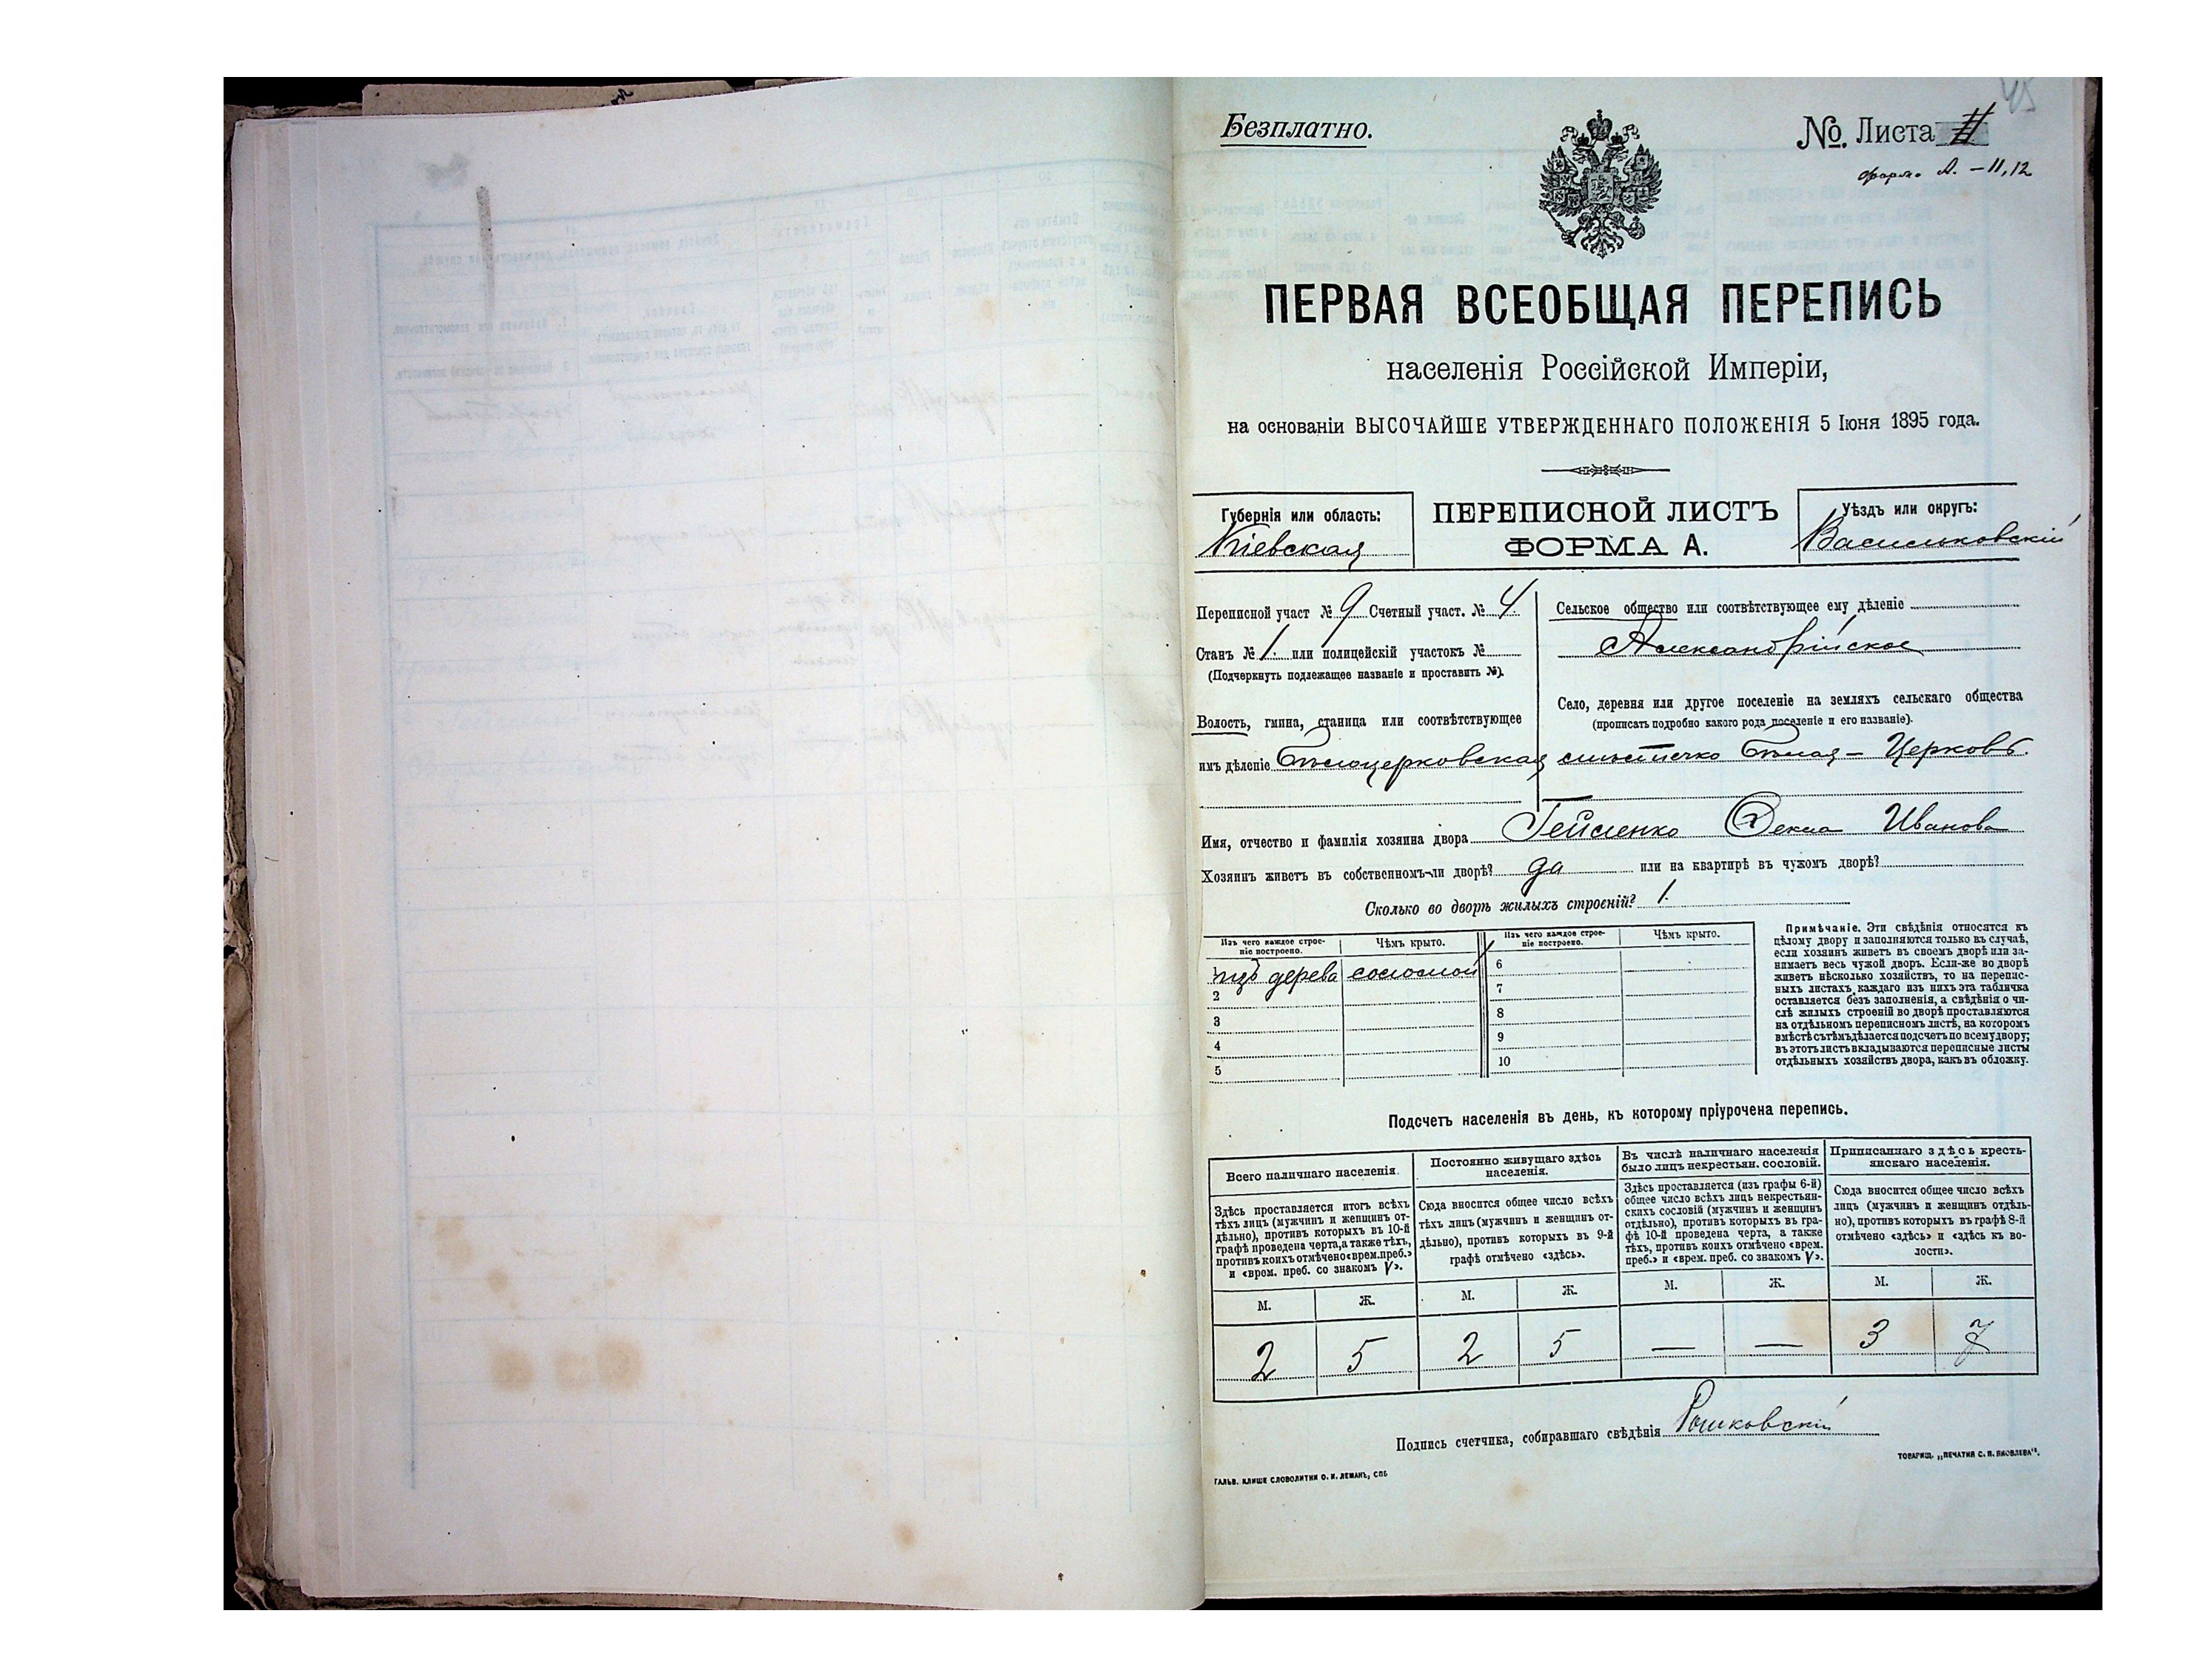 45
Безплатно.
№. Листа
форма А. – 11, 12
ПЕРВАЯ ВСЕОБЩАЯ ПЕРЕПИСЬ
населенія Россійской Имперіи,
на основаніи ВЫСОЧАЙШЕ УТВЕРЖДЕННАГО ПОЛОЖЕНІЯ 5 Іюня 1895 года.
Губернія или область:
Кіевская
ПЕРЕПИСНОЙ ЛИСТЪ
ФОРМА А.
Уѣздъ или округъ:
Васильковскій
Переписной участ № 9 Счетный участ. № 4.
Станъ № 1. или полицейскій участокъ №
(Подчеркнуть подлежащее названіе и проставить №).
Волость, гмина, станица или соотвѣтствующее
имъ дѣленіе Бѣлоцерковская
Сельское общество или соотвѣтствующее ему дѣленіе
Александрійское
Село, деревня или другое поселеніе на земляхъ сельскаго общества
(прописать подробно какого рода поселеніе и его названіе).
мѣстечко Бѣлая – Церковь.
Имя, отчество и фамилія хозяина двора Ивановъ
Хозяинъ живетъ въ собственномъ-ли дворѣ? да или на квартирѣ въ чужомъ дворѣ?
Сколько во дворѣ жилыхъ строеній? 1.
Изъ чего каждое строе-
ніе построено.
Чѣмъ крыто.
Изъ чего каждое строе-
ніе построено.
Чѣмъ крыто.
1 изъ дерева соломой 6
2 7
3 8
4 9
5 10
Примѣчаніе. Эти свѣдѣнія относятся къ
цѣлому двору и заполняются только въ случаѣ,
если хозяинъ живетъ въ своемъ дворѣ или за-
нимаетъ весь чужой дворъ. Если-же во дворѣ
живетъ нѣсколько хозяйствъ, то на перепис-
ныхъ листахъ каждаго изъ нихъ эта табличка
оставляется безъ заполненія, а свѣдѣнія о чи-
слѣ жилыхъ строеній во дворѣ проставляются
на отдѣльномъ переписномъ листѣ, на которомъ
вмѣстѣ съ тѣмъ дѣлается подсчетъ по всему двору;
въ этотъ листъ вкладываются переписные листы
отдѣльныхъ хозяйствъ двора, какъ въ обложку.
Подсчетъ населенія въ день, къ которому пріурочена перепись.
Всего наличнаго населенія.
Здѣсь проставляется итогъ всѣхъ
тѣхъ лицъ (мужчинъ и женщинъ от-
дѣльно), противъ которыхъ въ 10-й
графѣ проведена черта, а также тѣхъ,
противъ коихъ отмѣчено «врем. преб.»
и «врем. преб. со знакомъ V».
Постоянно живущаго здѣсь
населенія.
Сюда вносится общее число всѣхъ
тѣхъ лицъ (мужчинъ и женщинъ от-
дѣльно), противъ которыхъ въ 9-й
графѣ отмѣчено «здѣсь».
Въ числѣ наличнаго населенія
было лицъ некрестьян. сословій.
Здѣсь проставляется (изъ графы 6-й)
общее число всѣхъ лицъ некрестьян-
скихъ сословій (мужчинъ и женщинъ
отдѣльно), противъ которыхъ въ гра-
фѣ 10-й проведена черта, а также
тѣхъ, противъ коихъ отмѣчено «врем.
преб.» и «врем. преб. со знакомъ V».
Приписаннаго здѣсь кресть-
янскаго населенія.
Сюда вносится общее число всѣхъ
лицъ (мужчинъ и женщинъ отдѣль-
но), противъ которыхъ въ графѣ 8-й
отмѣчено «здѣсь» и «здѣсь въ во-
лости».
М. Ж. М. Ж. М. Ж. М. Ж.
2 5 2 5 — — 3
Подпись счетчика, собиравшаго свѣдѣнія
ГАЛЬВ. КЛИШЕ СЛОВОЛИТНИ О. И. ЛЕМАНЪ, СПБ
ТОВАРИЩ. „ПЕЧАТНЯ С. П. ЯКОВЛЕВА".